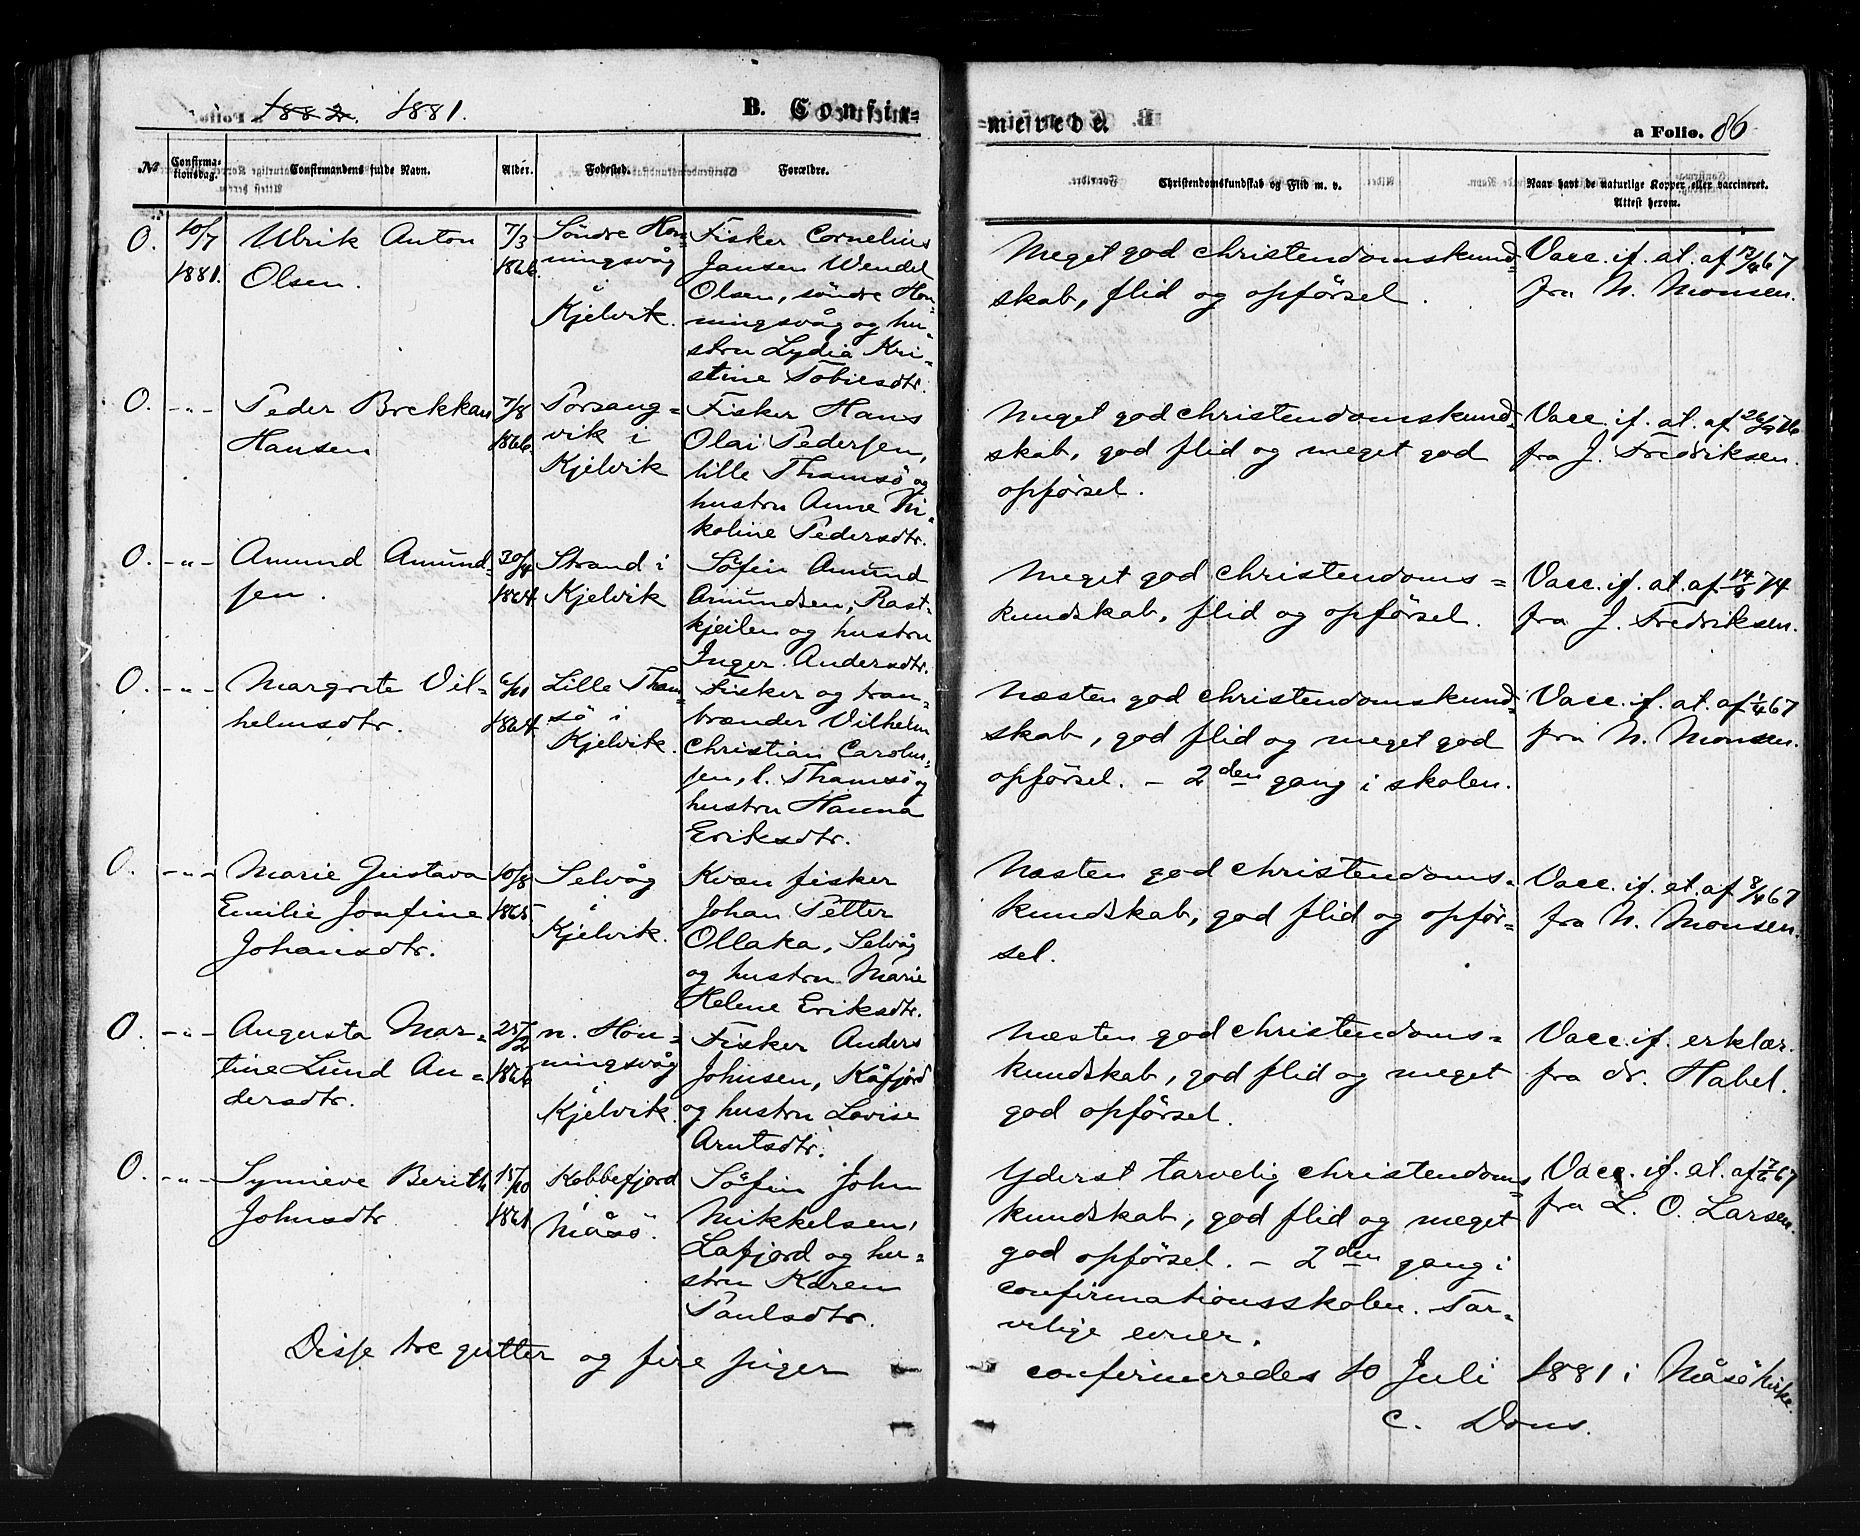 1882. 1881.
B. Confir=
merede.
a Folio. 86
№
Confirma-
tionsdag.
Confirmandens fulde Navn.
Alder.
Fødested.
Forældre.
Christendomskundskab og Flid m. v.
Naar havt de naturlige Kopper eller vaccineret.
Attest herom.
O. 10/7 1881.
Ulrik Anton
Olsen.
7/3
1866.
Söndre Hon=
ningsvåg
i
Kjelvik.
Fisker Cornelius
Jansen Wendel
Olsen, söndre Hon=
ningsvåg og hu=
stru Lydia Kri=
stine Tobiesdtr.
Meget god christendomskund=
skab, flid og opförsel.
Vacc. if. at. af 12/4 67
fra N. Monsen.
O. -"-
Peder Brekkan
Hansen
7/8
1866.
Porsang=
vik i
Kjelvik
Fisker Hans
Olai Pedersen,
lille Thamsö og
hustru Anne Ni=
koline Pedersdtr.
Meget god christendomskund=
skab, god flid og meget god
opförsel.
Vacc. if. at. af 26/9 76
fra J. Fredriksen.
O. -"-
Amund Amund=
sen.
30/4
1864
Strand i
Kjelvik
Söfin Amund
Amundsen, Rast=
kjeilen og hustru
Inger Andersdtr.
Meget god christendoms=
kundskab, flid og opförsel.
Vacc. if. at. af 14/9 74
fra J. Fredriksen.
O. -"-
Margrete Vil-
helmsdtr.
6/10
1864.
Lille Tham
sö i
Kjelvik.
Fisker og tran=
brænder Vilhelm
Christian Carolus=
sen, l. Thamsö og
hustru Hanna
Eriksdtr.
Næsten god christendomskund=
skab, god flid og meget god
opförsel. - 2den gang i skolen.
Vacc. if. at. af 1/4 67
fra N. Monsen.
O. -"-
Marie Gustava
Emilie Josfine
Johansdtr.
10/8
1865
Selvåg
i
Kjelvik.
Kvæn fisker
Johan Petter
Ollaka, Selvåg
og hustru Marie
Helene Eriksdtr.
Næsten god christendoms=
kundskab, god flid og opför=
sel.
Vacc. if. at. af 8/4 67
fra N. Monsen.
O. -"-
Augusta Mar-
tine Lund An-
dersdtr.
25/2
1866
n. Hon=
ningsvåg
i
Kjelvik.
Fisker Anders
Johnsen, Kåfjord
og hustru Lovise
Arntsdtr.
Næsten god christendoms=
kundskab, god flid og meget
god opförsel.
Vacc. if. erklær.
fra dr. Habel.
O. -"-
Synnève Berith
Johnsdtr
15/10
1861
Kobbefjord
i
Måsö.
Söfin John
Mikkelsen,
Lafjord og hu=
stru Karen
Paulsdtr.
Yderst tarvelig christendoms=
kundskab, god flid og meget
god opförsel. - 2den gang i
confirmationsskolen. Tar-
velige evner.
Vacc. if. at. af 7/6 67
fra L. O. Larsen.
Disse tre gutter og fire piger
confirmeredes 10 Juli 1881 i Måsö kirke.
C. Dons.